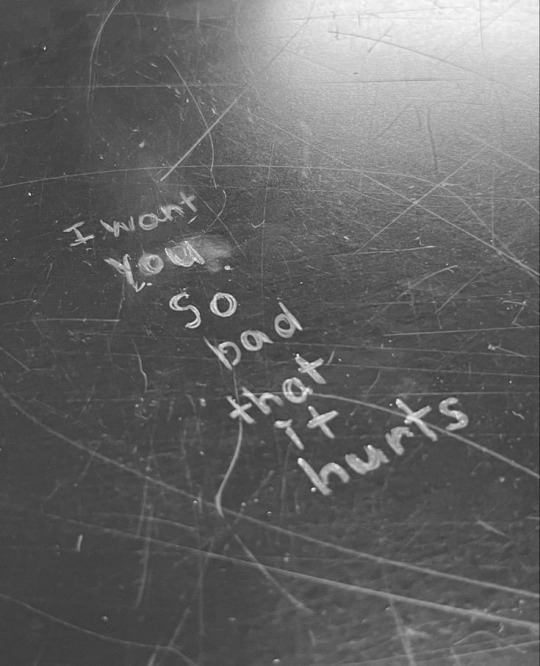 I want
you
so
bad
that
it
hurts